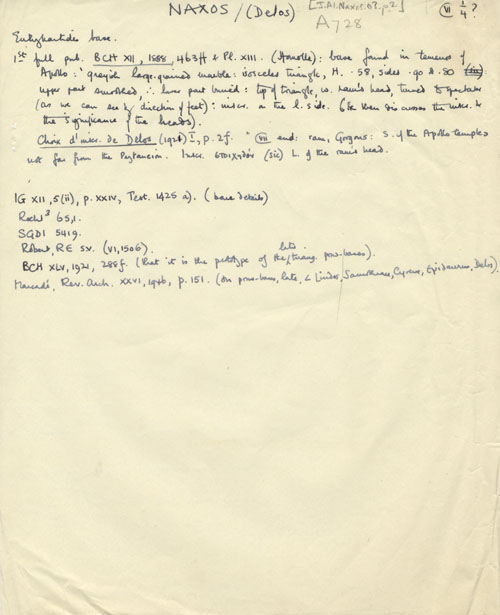 NAXOS / (Delos) [J.Al.Naxos.07.p2] VII 1/4 ?
A 728
Euthykartides base.
1st full pub. BCH XII, 1888, 463ff & Pl. XIII. (Homolle): base found in temenos of
Apollo: "greyish large-grained marble: isosceles triangle, H. ·58, sides ·90 & ·80
upper part smoothed, ∴ lower part buried: tip of triangle, w. ram's head, turned to spectator
(as we can see by direction of feet): inscr. on the L. side. (He then discusses the inscr. &
the significance of the heads).
Choix d'inscr. de Délos (1921) I, p. 2f. " VII end: ram, Gorgons: S. of the Apollo temples
not far from the Prytaneion. Inscr. (sic) L. of the ram's head.
IG XII, 5(ii), p. XXIV, Test. 1425 a). (base details)
Roehl³ 65,1.
SGDI 5419.
Robert, RE sv. (VI, 1506).
BCH XLV, 1921, 288f. (that it is the prototype of the late triang. prow-bases).
Marcadé, Rev. Arch. XXVI, 1946, p. 151. (on prow-bases, late, Lindos, Samothrace, Cyrene, Epidaurus, Delos).